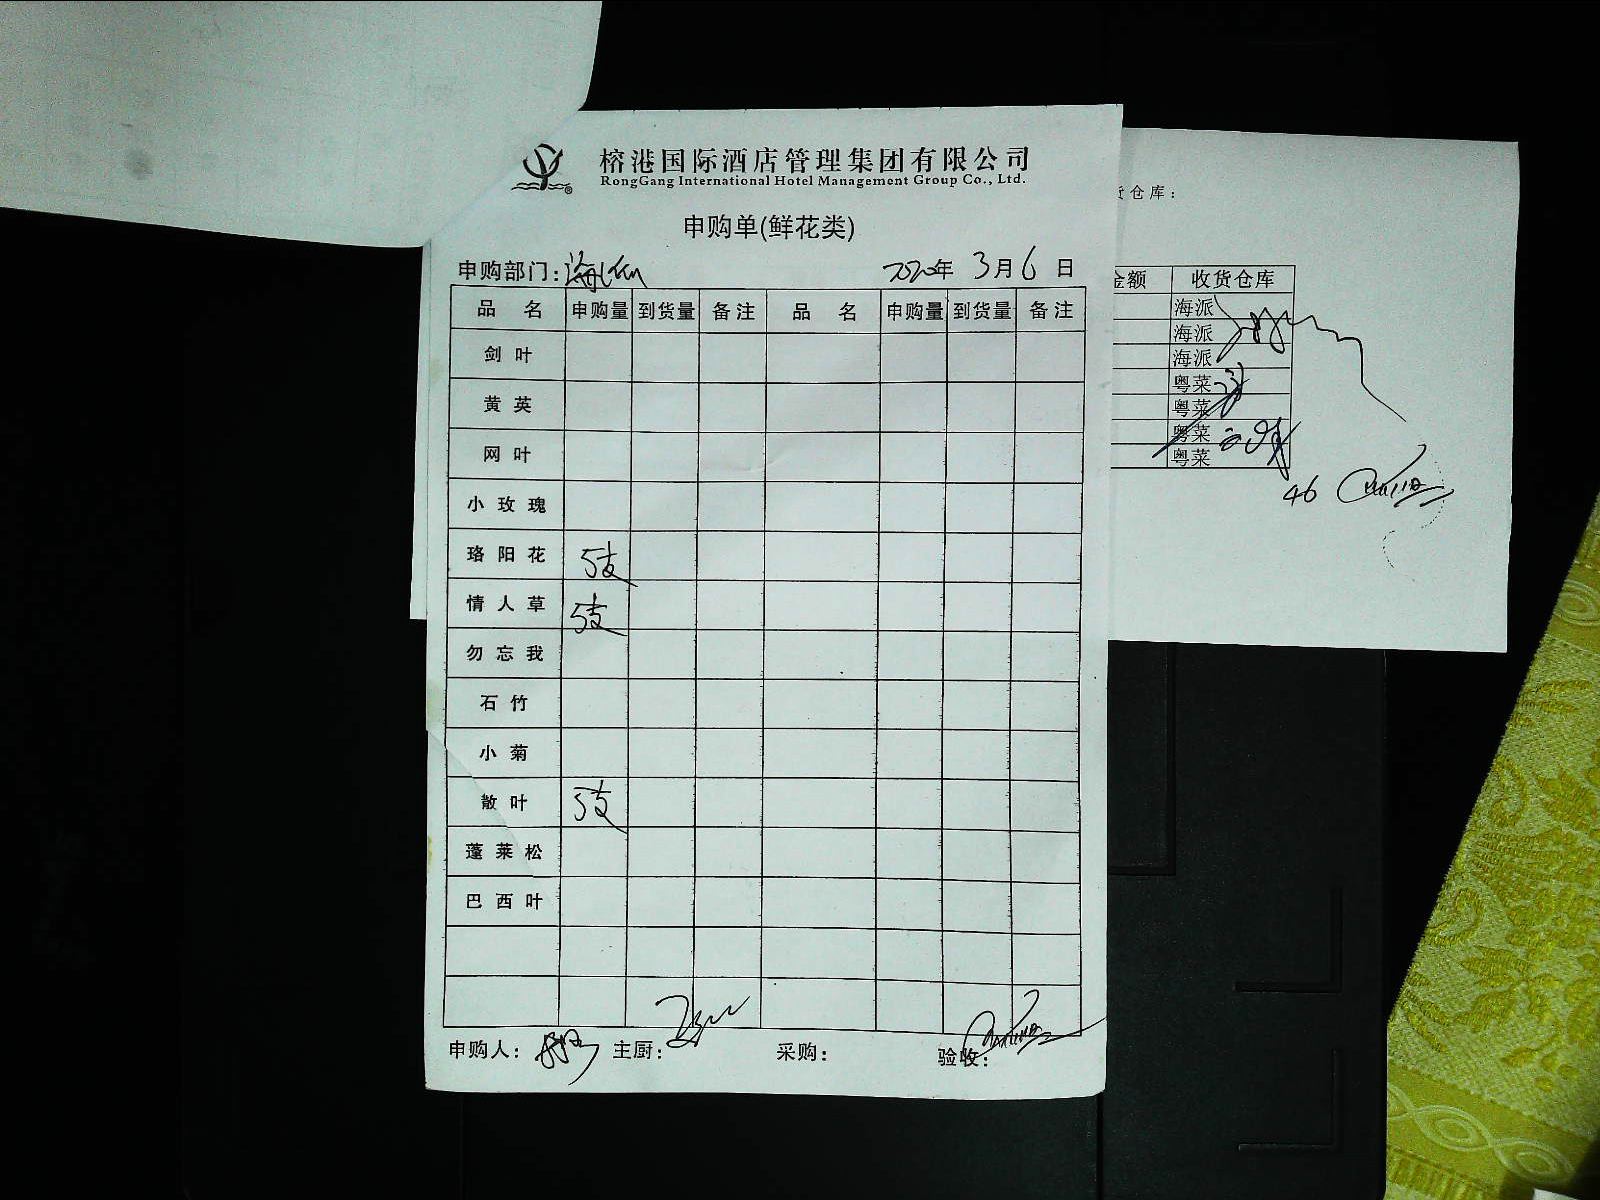 榕港国际酒店管理集团有限公司
RongGang International Hotel Management Group Co., Ltd.
申购单(鲜花类)
申购部门:海派 2020年 3月6日
品 名 申购量 到货量 备注 品 名 申购量 到货量 备注
剑叶
黄英
网叶
小玫瑰
珞阳花 5支
情人草 5支
勿忘我
石竹
小菊
散叶 5支
蓬莱松
巴西叶
申购人: 主厨: 采购: 验收:
货仓库:
金额 收货仓库
海派
海派
海派
粤菜
粤菜
粤菜
粤菜
46